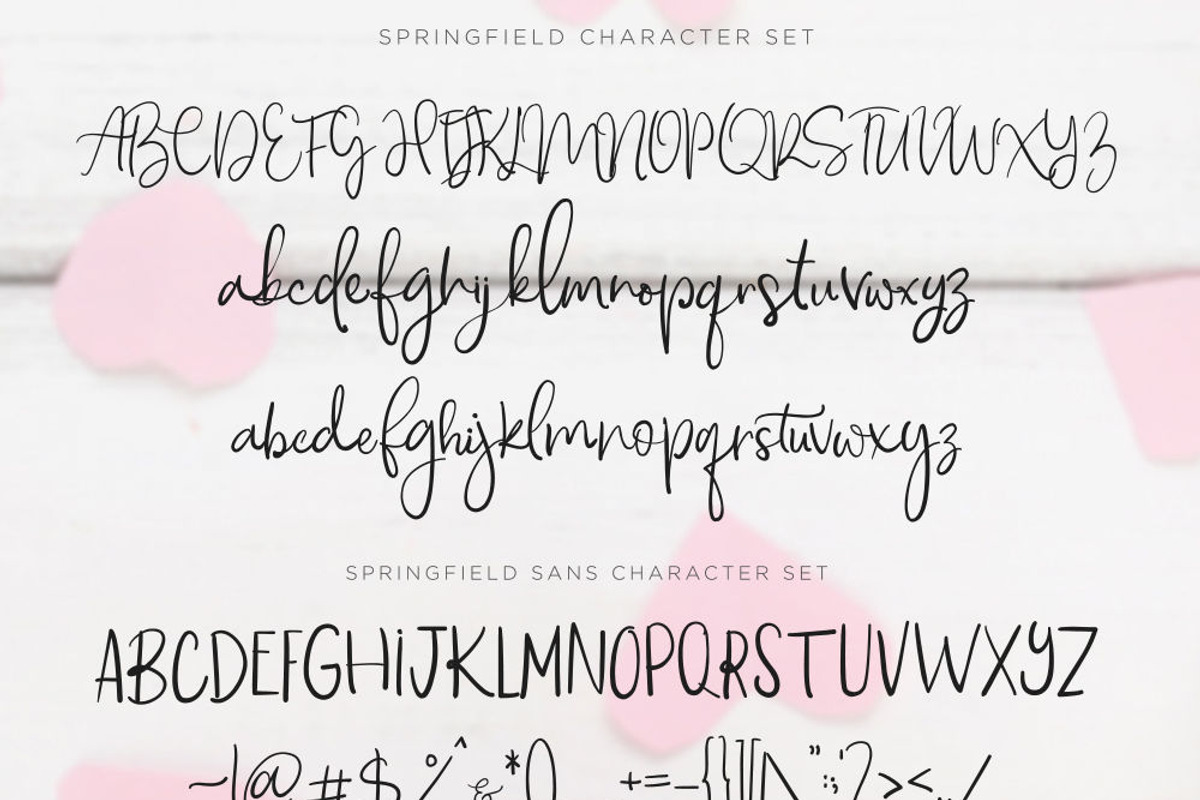 SPRINGFIELD CHARACTER SET
ABCDEFGHIJKLMNOPQRSTUVWXYZ
abcdefghijklmnopqrstuvwxyz
abcdefghijklmnopqrstuvwxyz
SPRINGFIELD SANS CHARACTER SET
ABCDEFGHiJKLMNOPQRSTUVWXYZ
~|@#$%^&*() +=-{}][\":;'?><.,/